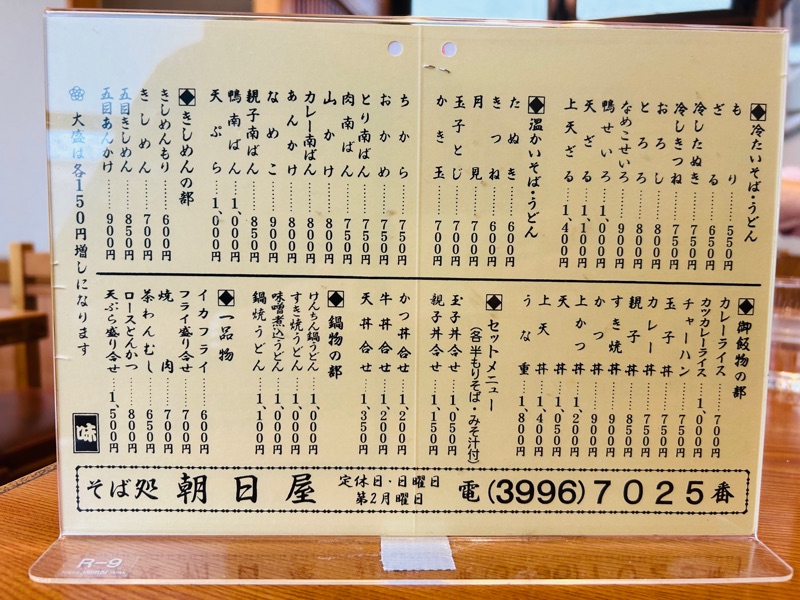 ◆冷たいそば・うどん
もり……550円
ざる……650円
冷したぬき……750円
冷しきつね……750円
おろし……800円
とろろ……800円
なめこせいろ……900円
鴨せいろ……1,000円
天ざる……1,100円
上天ざる……1,400円
◆温かいそば・うどん
たぬき……600円
きつね……600円
月見……700円
玉子とじ……700円
かき玉……700円
ちから……750円
おかめ……750円
とり南ばん……750円
肉南ばん……750円
山かけ……800円
カレー南ばん……800円
あんかけ……800円
なめこ……900円
親子南ばん……850円
鴨南ばん……1,000円
天ぷら……1,000円
◆きしめんの部
きしめんもり……600円
きしめん……700円
五目きしめん……850円
五目あんかけ……900円
大盛は各150円増しになります
◆御飯物の部
カレーライス……700円
カツカレーライス……1,000円
チャーハン……750円
玉子丼……750円
カレー丼……750円
親子丼……850円
すき焼丼……900円
かつ丼……900円
上かつ丼……1,200円
天丼……1,050円
上天丼……1,400円
うな重……1,800円
◆セットメニュー
(各半もりそば・みそ汁付)
玉子丼合せ……1,050円
親子丼合せ……1,150円
かつ丼合せ……1,200円
牛丼合せ……1,200円
天丼合せ……1,350円
◆鍋物の部
けんちん鍋うどん……1,000円
すき焼うどん……1,000円
味噌煮込うどん……1,000円
鍋焼うどん……1,100円
◆一品物
イカフライ……600円
フライ盛り合せ……700円
焼肉……700円
茶わんむし……650円
ロースとんかつ……800円
天ぷら盛り合せ……1,500円
味
そば処 朝日屋 定休日・日曜日 第2月曜日 電(3996)7025番
R-9